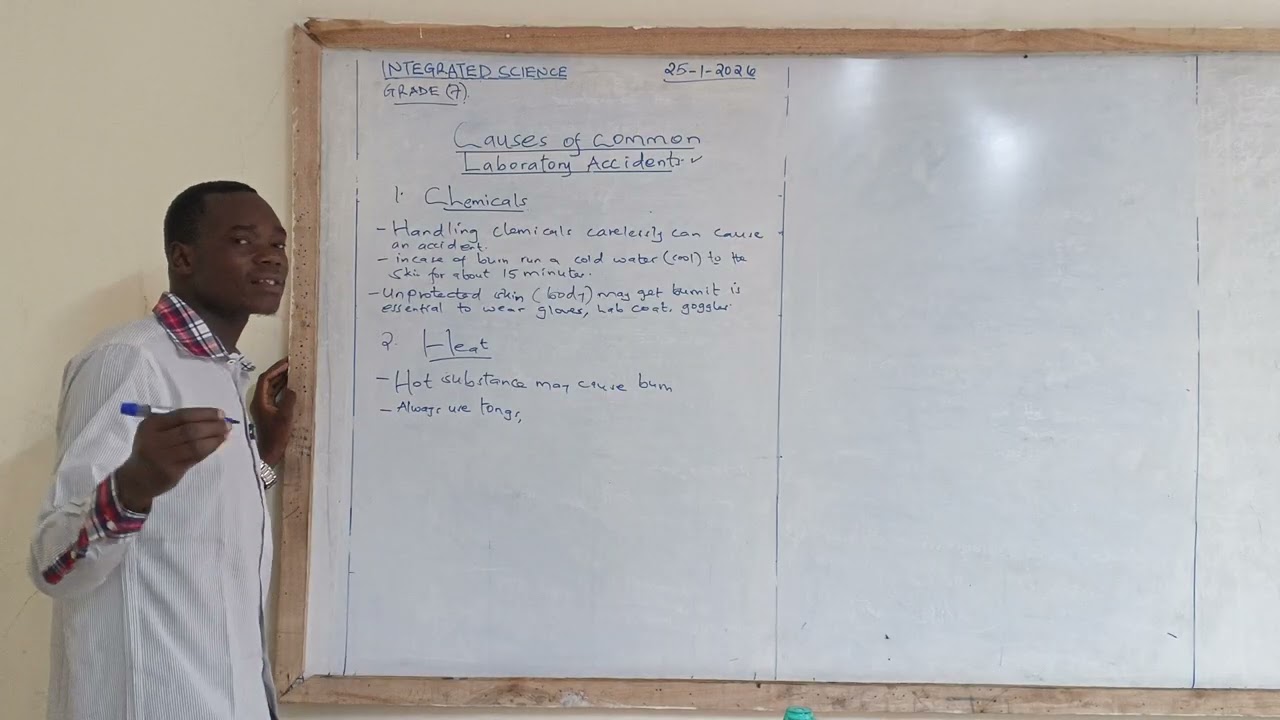 INTEGRATED SCIENCE 25-1-2026
GRADE (7)
Causes of common
Laboratory Accidents. ✓
1. Chemicals
- Handling chemicals carelessly can cause
an accident.
- incase of burn run a cold water (cool) to the
skin for about 15 minutes.
- Unprotected skin (body) may get burn it is
essential to wear gloves, Lab coat, goggles.
2. Heat
- Hot substance may cause burn
- Always use tongs,